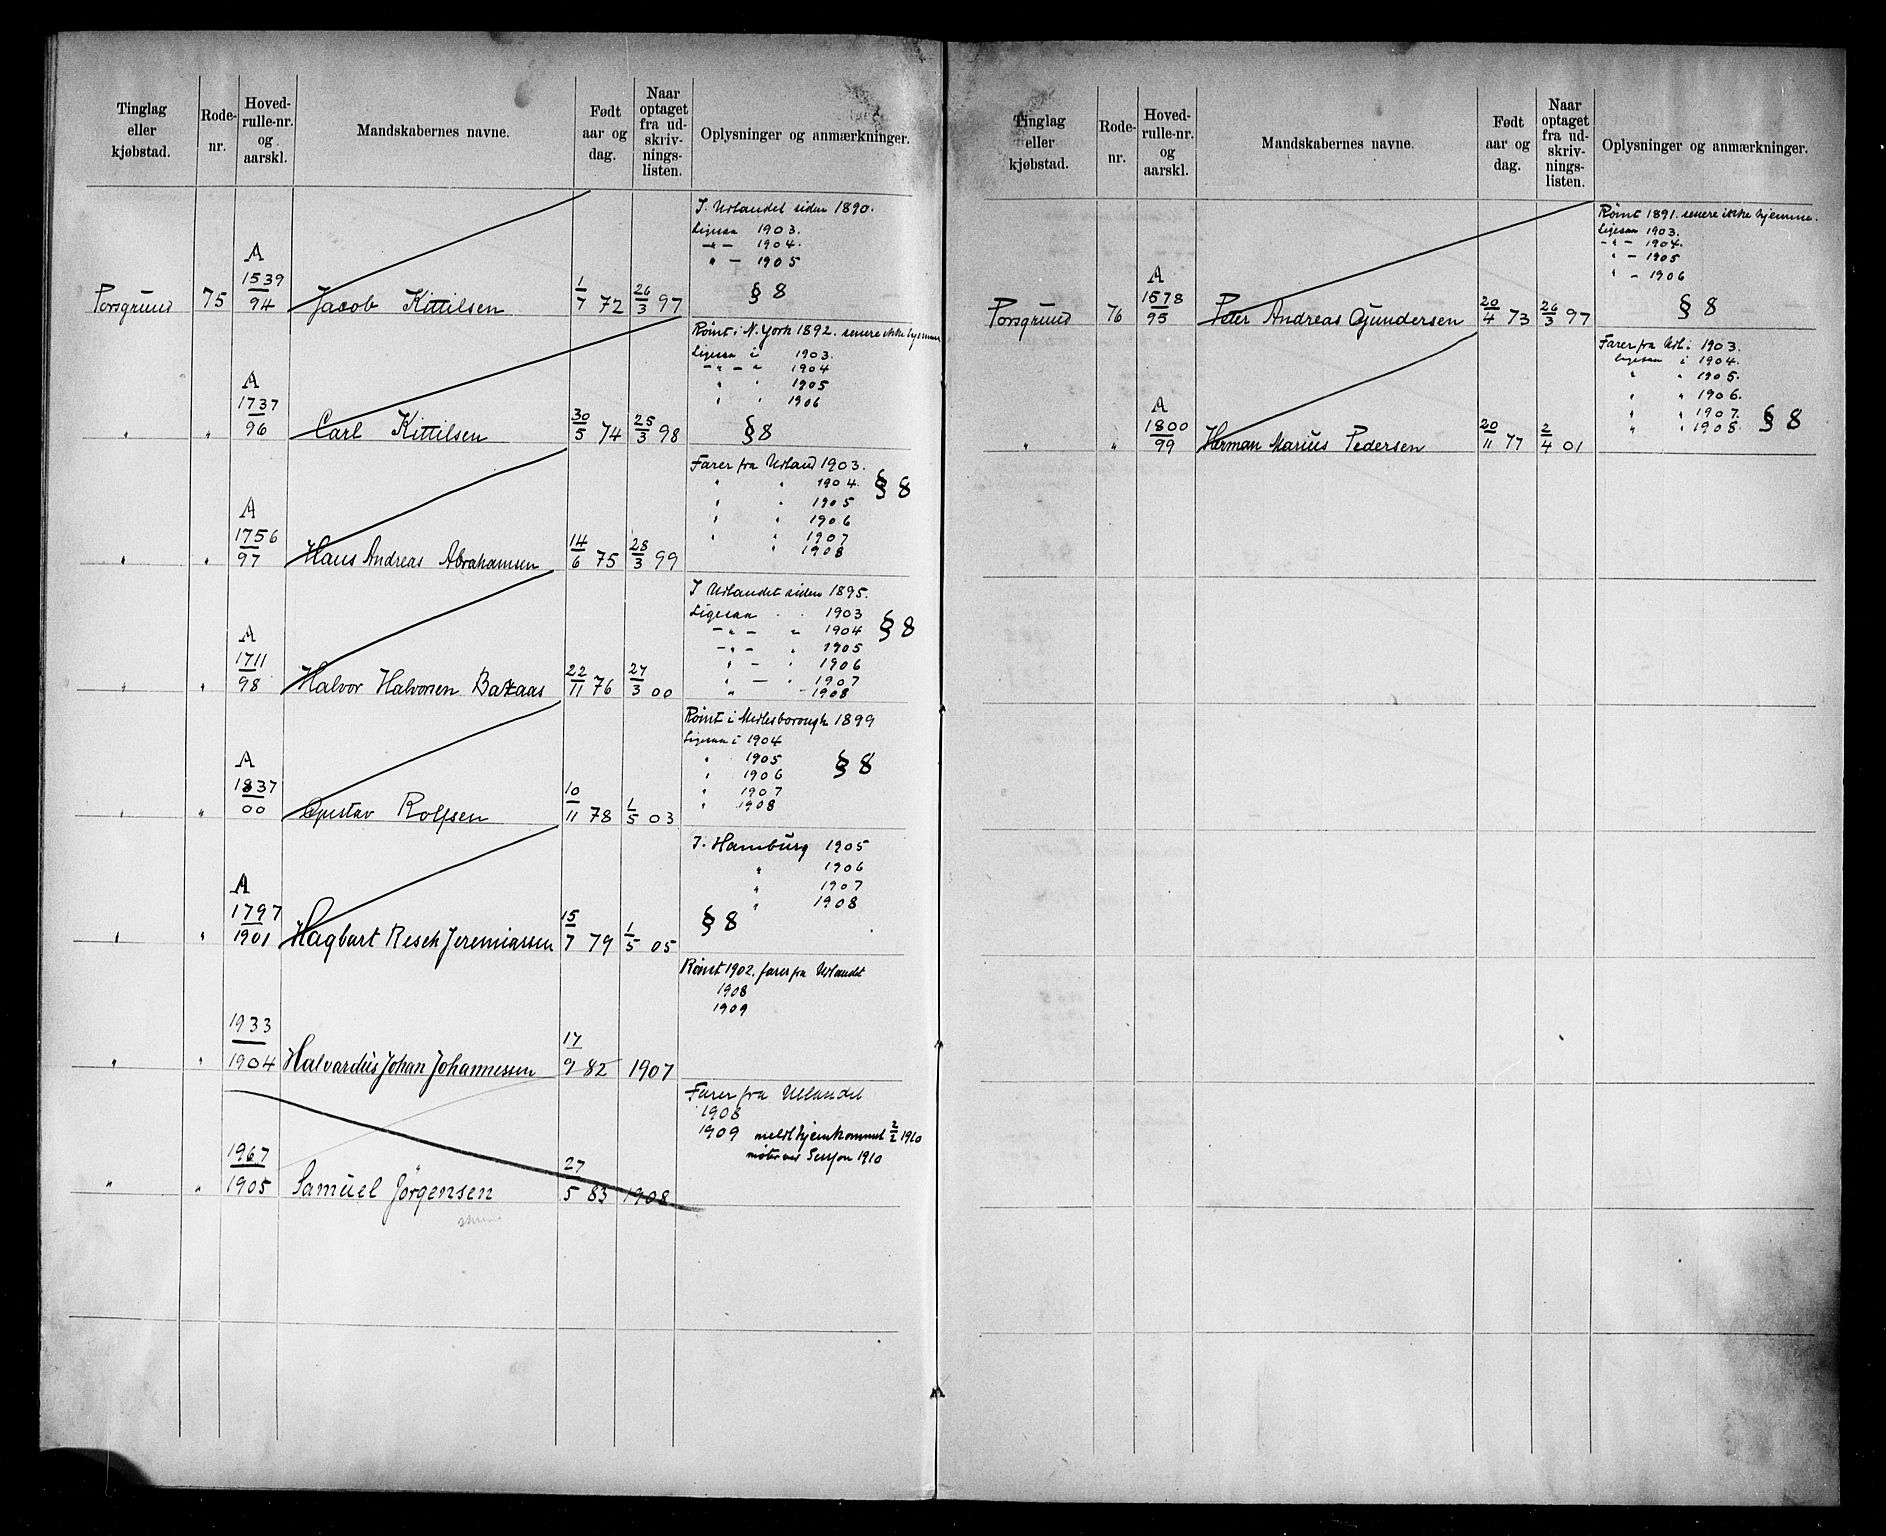 Tinglag eller kjøbstad. Rode-nr. Hoved-rulle-nr. og aarskl. Mandskabernes navne. Født aar og dag. Naar optaget fra ud-skriv-nings-listen. Oplysninger og anmærkninger.
I Udlandet siden 1890.
Ligesaa 1903.
–„– 1904.
„ – 1905
A
1539
Porsgrund 75 94 Jacob Kittilsen 1/7 72 26/3 97 § 8
Rømt i N. York 1892. senere ikke hjemme
Ligesaa i 1903.
–„–„ 1904
„ „ 1905
„ „ 1906
A
1737
„ „ 96 Carl Kittilsen 30/5 74 25/3 98 § 8
Farer fra Udland 1903.
„ „ 1904. § 8
„ „ 1905
„ „ 1906
„ „ 1907
„ 1908
A
1756
„ „ 97 Hans Andreas Abrahamsen 14/6 75 28/3 99
I Udlandet siden 1895.
Ligesaa „ 1903
–„– „ 1904 § 8
–„– „ 1905
„ – „ 1906
„ – „ 1907
„ – 1908
A
1711
„ „ 98 Halvor Halvorsen 22/11 76 27/3 00
Rømt i Midlesborough 1899
Ligesaa i 1904
„ 1905 § 8
„ 1906
„ 1907
„ 1908
A
1837
„ „ 00 Gustav Rolfsen 10/11 78 1/5 03
I. Hamburg 1905
„ 1906
„ 1907
„ 1908
A
1797
„ „ 1901 Hagbart Resch Jeremiassen 15/7 79 1/5 05 § 8
Rømt 1902. farer fra Udlandet
1908
1909
1933
„ „ 1904 Halvardius Johan Johannessen 17/9 82 1907
Farer fra Udlandet
1908
1909 meldt hjemkommet 2/2 1910
møter ved Sesjon 1910
1967
„ „ 1905 Samuel Jørgensen 27/5 83 1908
Tinglag eller kjøbstad. Rode-nr. Hoved-rulle-nr. og aarskl. Mandskabernes navne. Født aar og dag. Naar optaget fra ud-skriv-nings-listen. Oplysninger og anmærkninger.
Rømt 1891. senere ikke hjemme.
Ligesaa 1903.
–„– 1904.
„ – 1905
„ – 1906
A
1578
Porsgrund 76 95 Peter Andreas Gundersen 20/4 73 26/3 97 § 8
Farer fra Udl. i 1903.
Ligesaa i 1904.
„ „ 1905.
„ „ 1906.
„ „ 1907.
„ „ 1908. § 8
A
1800
„ „ 99 Herman Marius Pedersen 20/11 77 2/4 01